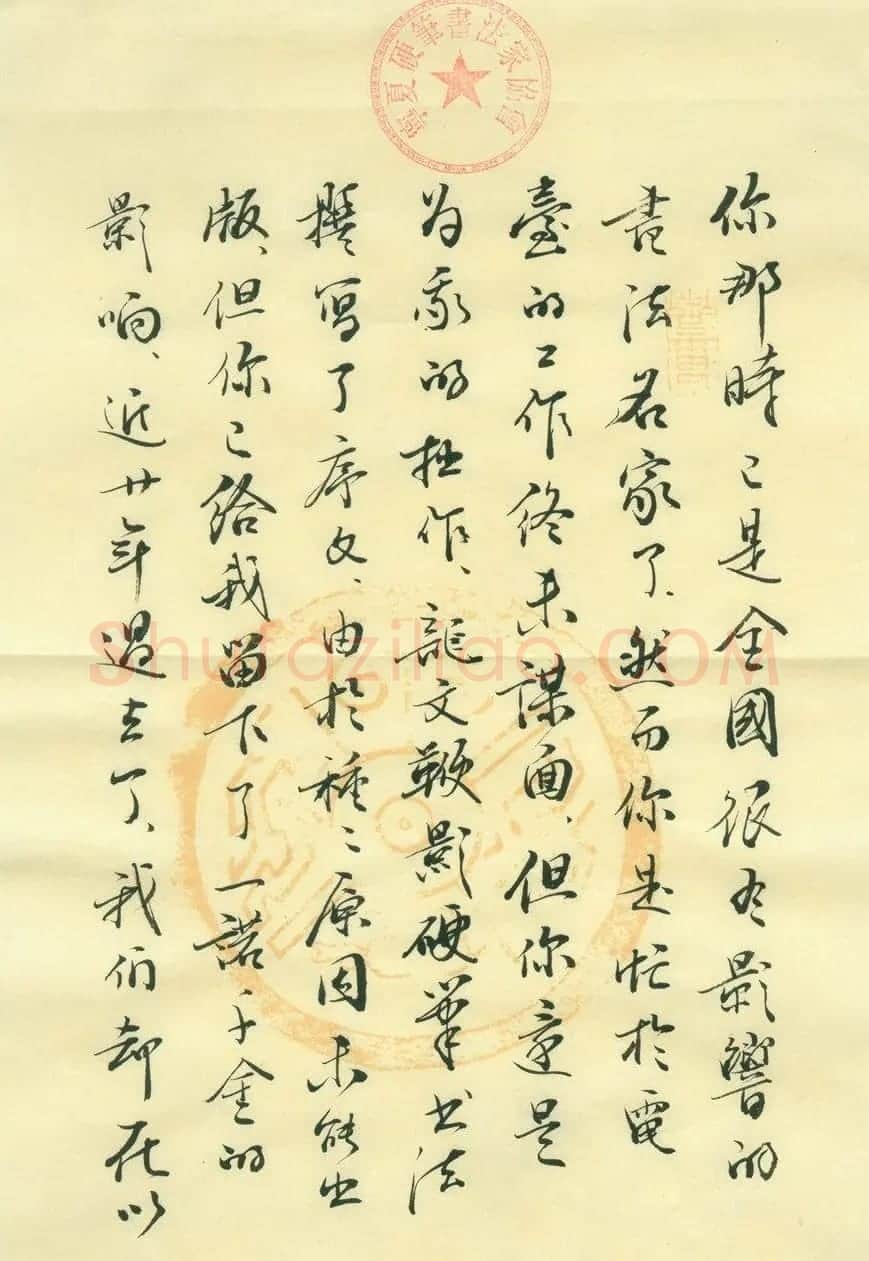 寧夏硬筆書法家協會
你那時已是全國很有影響的
書法名家了、然而你是忙於電
臺的工作終未謀面、但你還是
为我的拙作、龍文鞭影硬筆书法
撰寫了序文、由於種〻原因未能出
版、但你已给我留下了一諾千金的
影响、近廿年過去了、我们却在以
Shufaziliao.COM